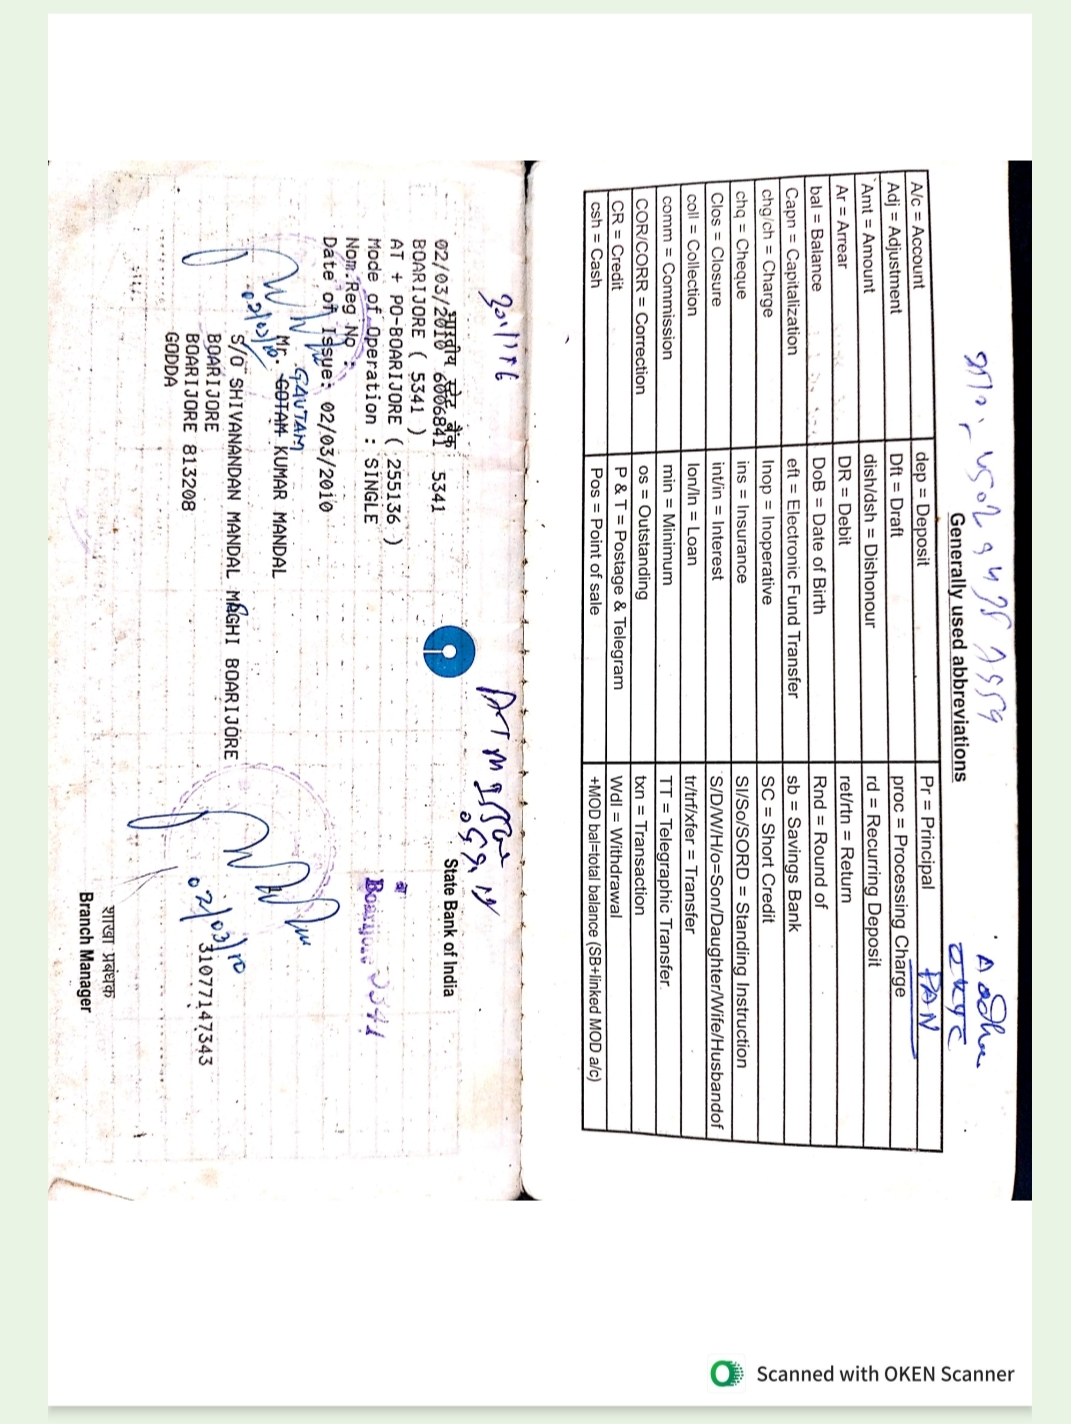 Aadhar
PAN
Generally used abbreviations
A/c = Account dep = Deposit Pr = Principal
Adj = Adjustment Dft = Draft proc = Processing Charge
Amt = Amount dish/dsh = Dishonour rd = Recurring Deposit
Ar = Arrear DR = Debit ret/rtn = Return
bal = Balance DoB = Date of Birth Rnd = Round of
Capn = Capitalization eft = Electronic Fund Transfer sb = Savings Bank
chg/ch = Charge Inop = Inoperative SC = Short Credit
chq = Cheque ins = Insurance SI/So/SORD = Standing Instruction
Clos = Closure int/in = Interest S/D/W/H/o=Son/Daughter/Wife/Husbandof
coll = Collection lon/ln = Loan tr/trf/xfer = Transfer
comm = Commission min = Minimum TT = Telegraphic Transfer
COR/CORR = Correction os = Outstanding txn = Transaction
CR = Credit P & T = Postage & Telegram Wdl = Withdrawal
csh = Cash Pos = Point of sale +MOD bal=total balance (SB+linked MOD a/c)
ATM
भारतीय स्टेट बैंक State Bank of India
02/03/2010 6006841 5341
BOARIJORE ( 5341 )
AT + PO-BOARIJORE ( 255136 )
Mode of Operation : SINGLE
Nom.Reg No :
Date of Issue: 02/03/2010
GAUTAM
Mr. GOTAM KUMAR MANDAL
02/03/10
S/O SHIVANANDAN MANDAL MAGHI BOARIJORE
BOARIJORE
BOARIJORE 813208
GODDA
Boarijore 5341
02/03/10
31077147343
शाखा प्रबंधक
Branch Manager
Scanned with OKEN Scanner